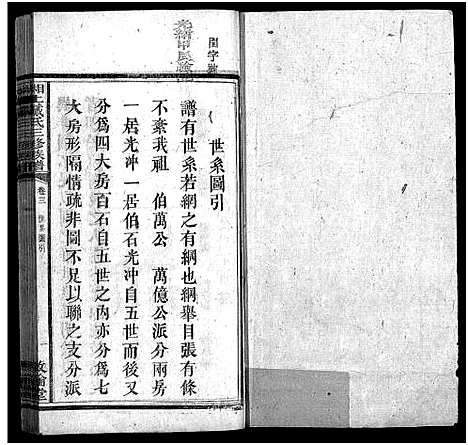 世系圖引
譜有世系若網之有綱也綱舉目張有條
不紊我祖 伯萬公 萬億公派分兩房
一居光冲一居伯石光冲自五世而後又
分為四大房百石自五世之內亦分為七
大房形隔情疏非圖不足以聯之支分派
氏三修族譜
卷三 世系圖引
一
敦倫堂